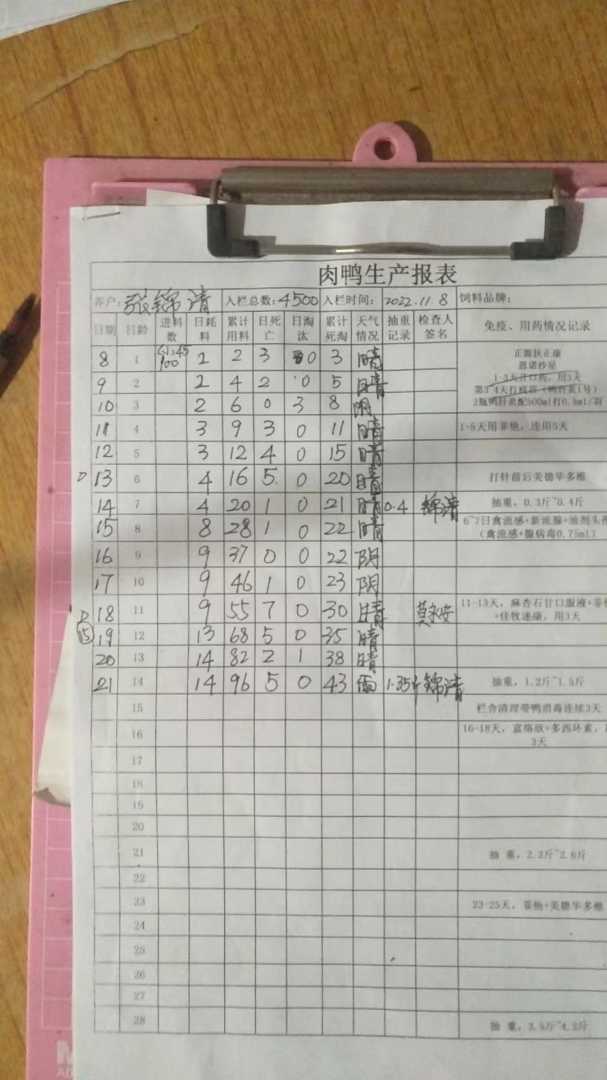 肉鸭生产报表
客户: 张锦清 入栏总数: 4500 入栏时间: 2022.11 8 饲料品牌:
日期 日龄 进料数 日耗料 累计用料 日死亡 日淘汰 累计死淘 天气情况 抽重记录 检查人签名 免疫、用药情况记录
8 1 2 2 3 0 3 晴
9 2 2 4 2 0 5 晴
10 3 2 6 0 3 8 阴
11 4 3 9 3 0 11 晴 1-5天用 连用5天
12 5 3 12 4 0 15 晴
13 6 4 16 5 0 20 晴 打针前后美德华多维
14 7 4 20 1 0 21 晴 0.4 锦清 抽重, 0.3斤~0.4斤
15 8 8 28 1 0 22 晴 6~7日禽流感+新流腺+
16 9 9 37 0 0 22 阴
17 10 9 46 1 0 23 阴
18 11 9 55 7 0 30 晴 11-13天, 麻杏石甘口服液+
15 19 12 13 68 5 0 35 晴 用3天
20 13 14 82 2 1 38 晴
21 14 14 96 5 0 43 雨 1.35斤 锦清 抽重, 1.2斤~1.5斤
15 栏舍清理带鸭消毒连续3天
16 16-18天, 多西环素, 3天
17
18
19
20
21 抽 重, 2.2斤~2.6斤
22
23 23-25天, 美德华多维
24
25
26
27
28 抽 重, 3.5斤~4.2斤